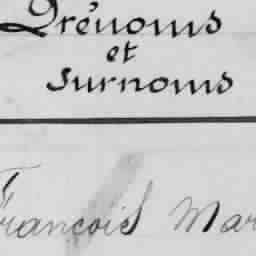 Prénoms
et
Surnoms
François Mar